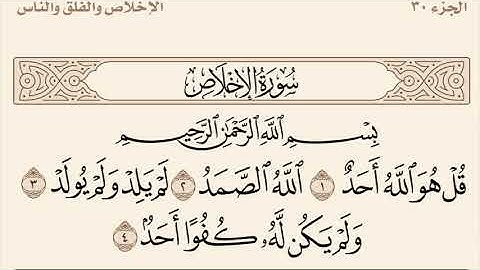 الجزء ٣٠
الإخلاص والفلق والناس
سُورَةُ الإِخْلَاصِ
بِسْمِ ٱللَّهِ ٱلرَّحْمَٰنِ ٱلرَّحِيمِ
قُلْ هُوَ ٱللَّهُ أَحَدٌ ١ ٱللَّهُ ٱلصَّمَدُ ٢ لَمْ يَلِدْ وَلَمْ يُولَدْ ٣
وَلَمْ يَكُن لَّهُۥ كُفُوًا أَحَدٌۢ ٤